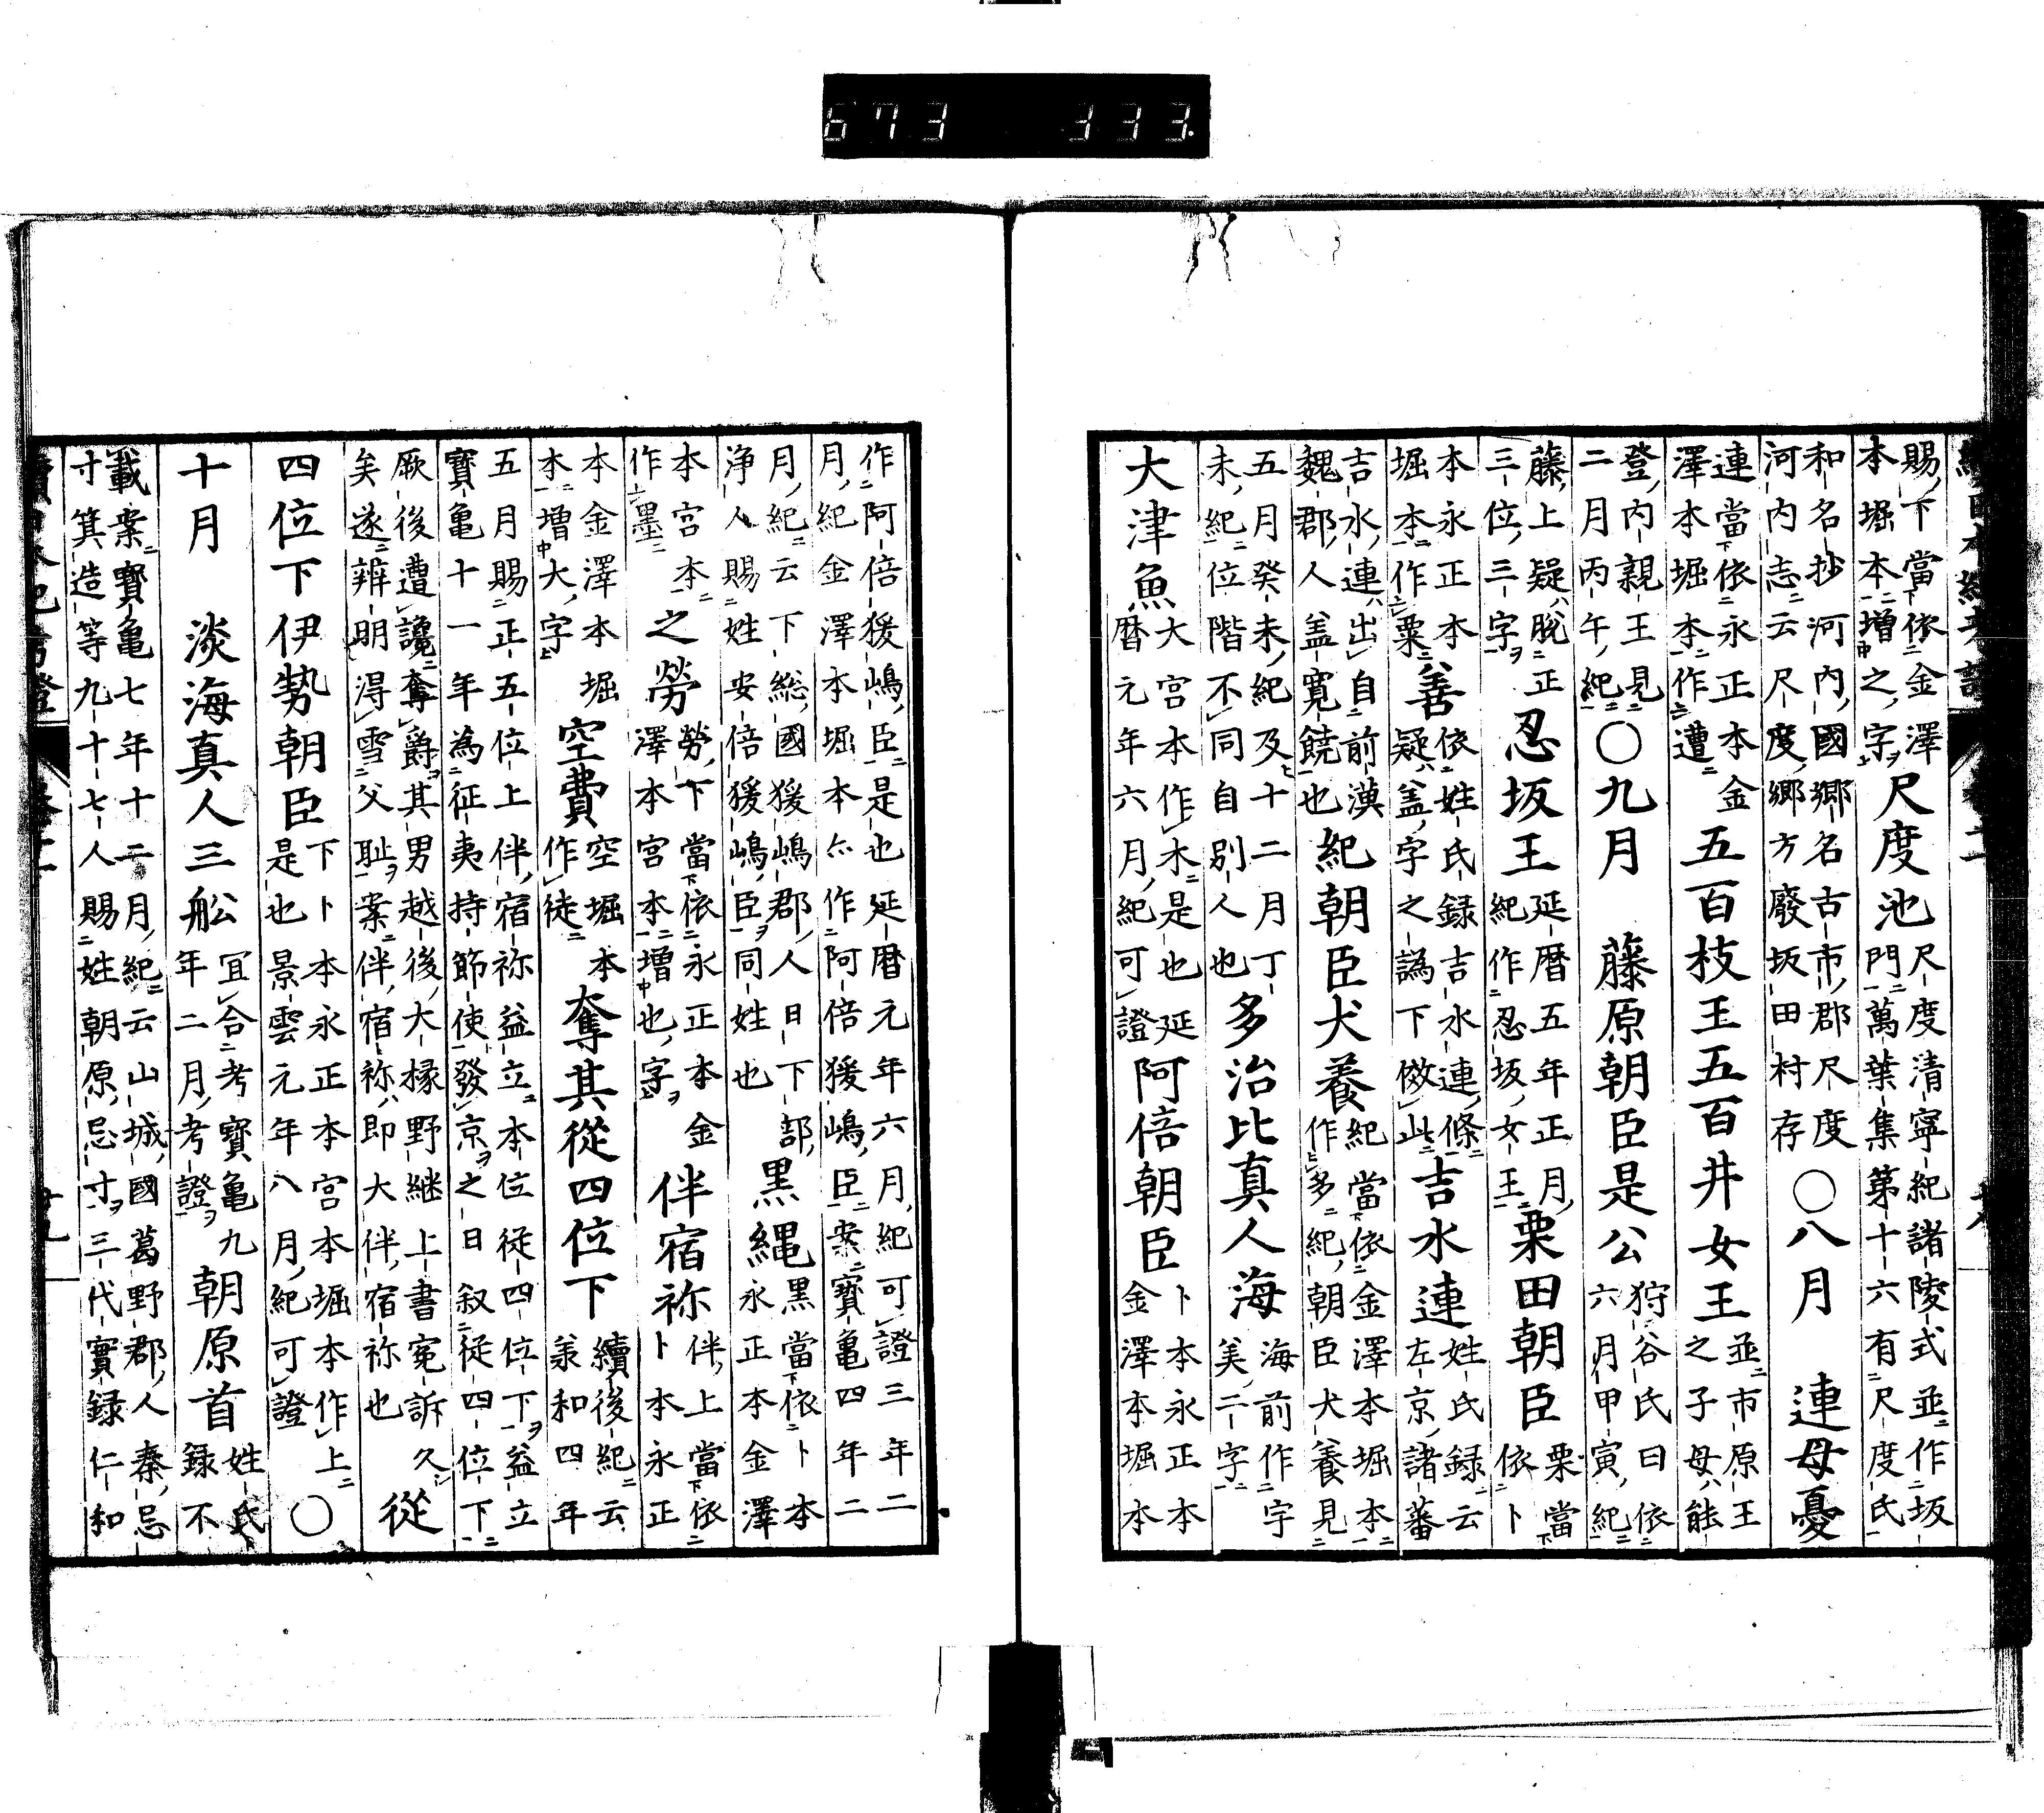 673 333
賜下當依金澤
本堀本増之字
尺度池
尺度清寧紀諸陵式並作坂
門萬葉集第十六有尺度氏
和名抄河内國郷名古市郡尺度
河内志云尺度郷方廢坂田村存
○八月 連母憂
連當依永正本金
澤本堀本作遭
五百枝王五百井女王
並市原王
之子母能
登内親王見
二月丙午紀
○九月 藤原朝臣是公
狩谷氏曰依
六月甲寅紀
藤上疑脱正
三位三字
忍坂王
延暦五年正月
紀作忍坂女王
栗田朝臣
栗當
依卜
本永正本
堀本作粟
善
依姓氏録吉水連條
疑盖字之譌下倣此
吉水連
姓氏録云
左京諸蕃
吉水連出自前漢
魏郡人盖寛饒也
紀朝臣犬養
紀當依金澤本堀本
作多紀朝臣犬養見
五月癸未紀及十二月丁
未紀位階不同自別人也
多治比真人海
海前作宇
美二字
大津魚
大宮本作木是也延
暦元年六月紀可證
阿倍朝臣
卜本永正本
金澤本堀本
作阿倍猨嶋臣是也延暦元年六月紀可證三年二
月紀金澤本堀本亦作阿倍猨嶋臣案寳亀四年二
月紀云下総國猨嶋郡人日下部
浄人賜姓安倍猨嶋臣同姓也
黒縄
黒當依卜本
永正本金澤
本宮本
作墨
之勞
勞下當依永正本金
澤本宮本増也字
伴宿祢
伴上當依
卜本永正
本金澤本堀
本増大字
空費
空堀本
作徒
奪其從四位下
續後紀云
羕和四年
五月賜正五位上伴宿祢益立本位從四位下益立
寳亀十一年為征夷持節使發京之日叙從四位下
厥後遭讒奪爵其男越後大掾野継上書寃訴久
矣遂辨明得雪父耻案伴宿祢即大伴宿祢也
從
四位下伊勢朝臣
下卜本永正本宮本堀本作上
是也景雲元年八月紀可證
○
十月 淡海真人三舩
冝合考寳亀九
年二月考證
朝原首
姓氏
録不
載案寳亀七年十二月紀云山城國葛野郡人秦忌
寸箕造等九十七人賜姓朝原忌寸三代實録仁和